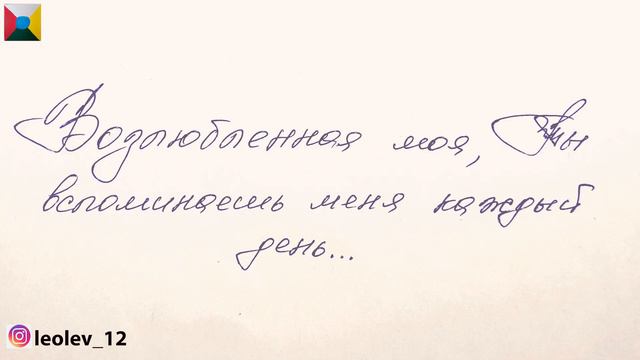 Возлюбленная моя, Ты
вспоминаешь меня каждый
день...
leolev_12